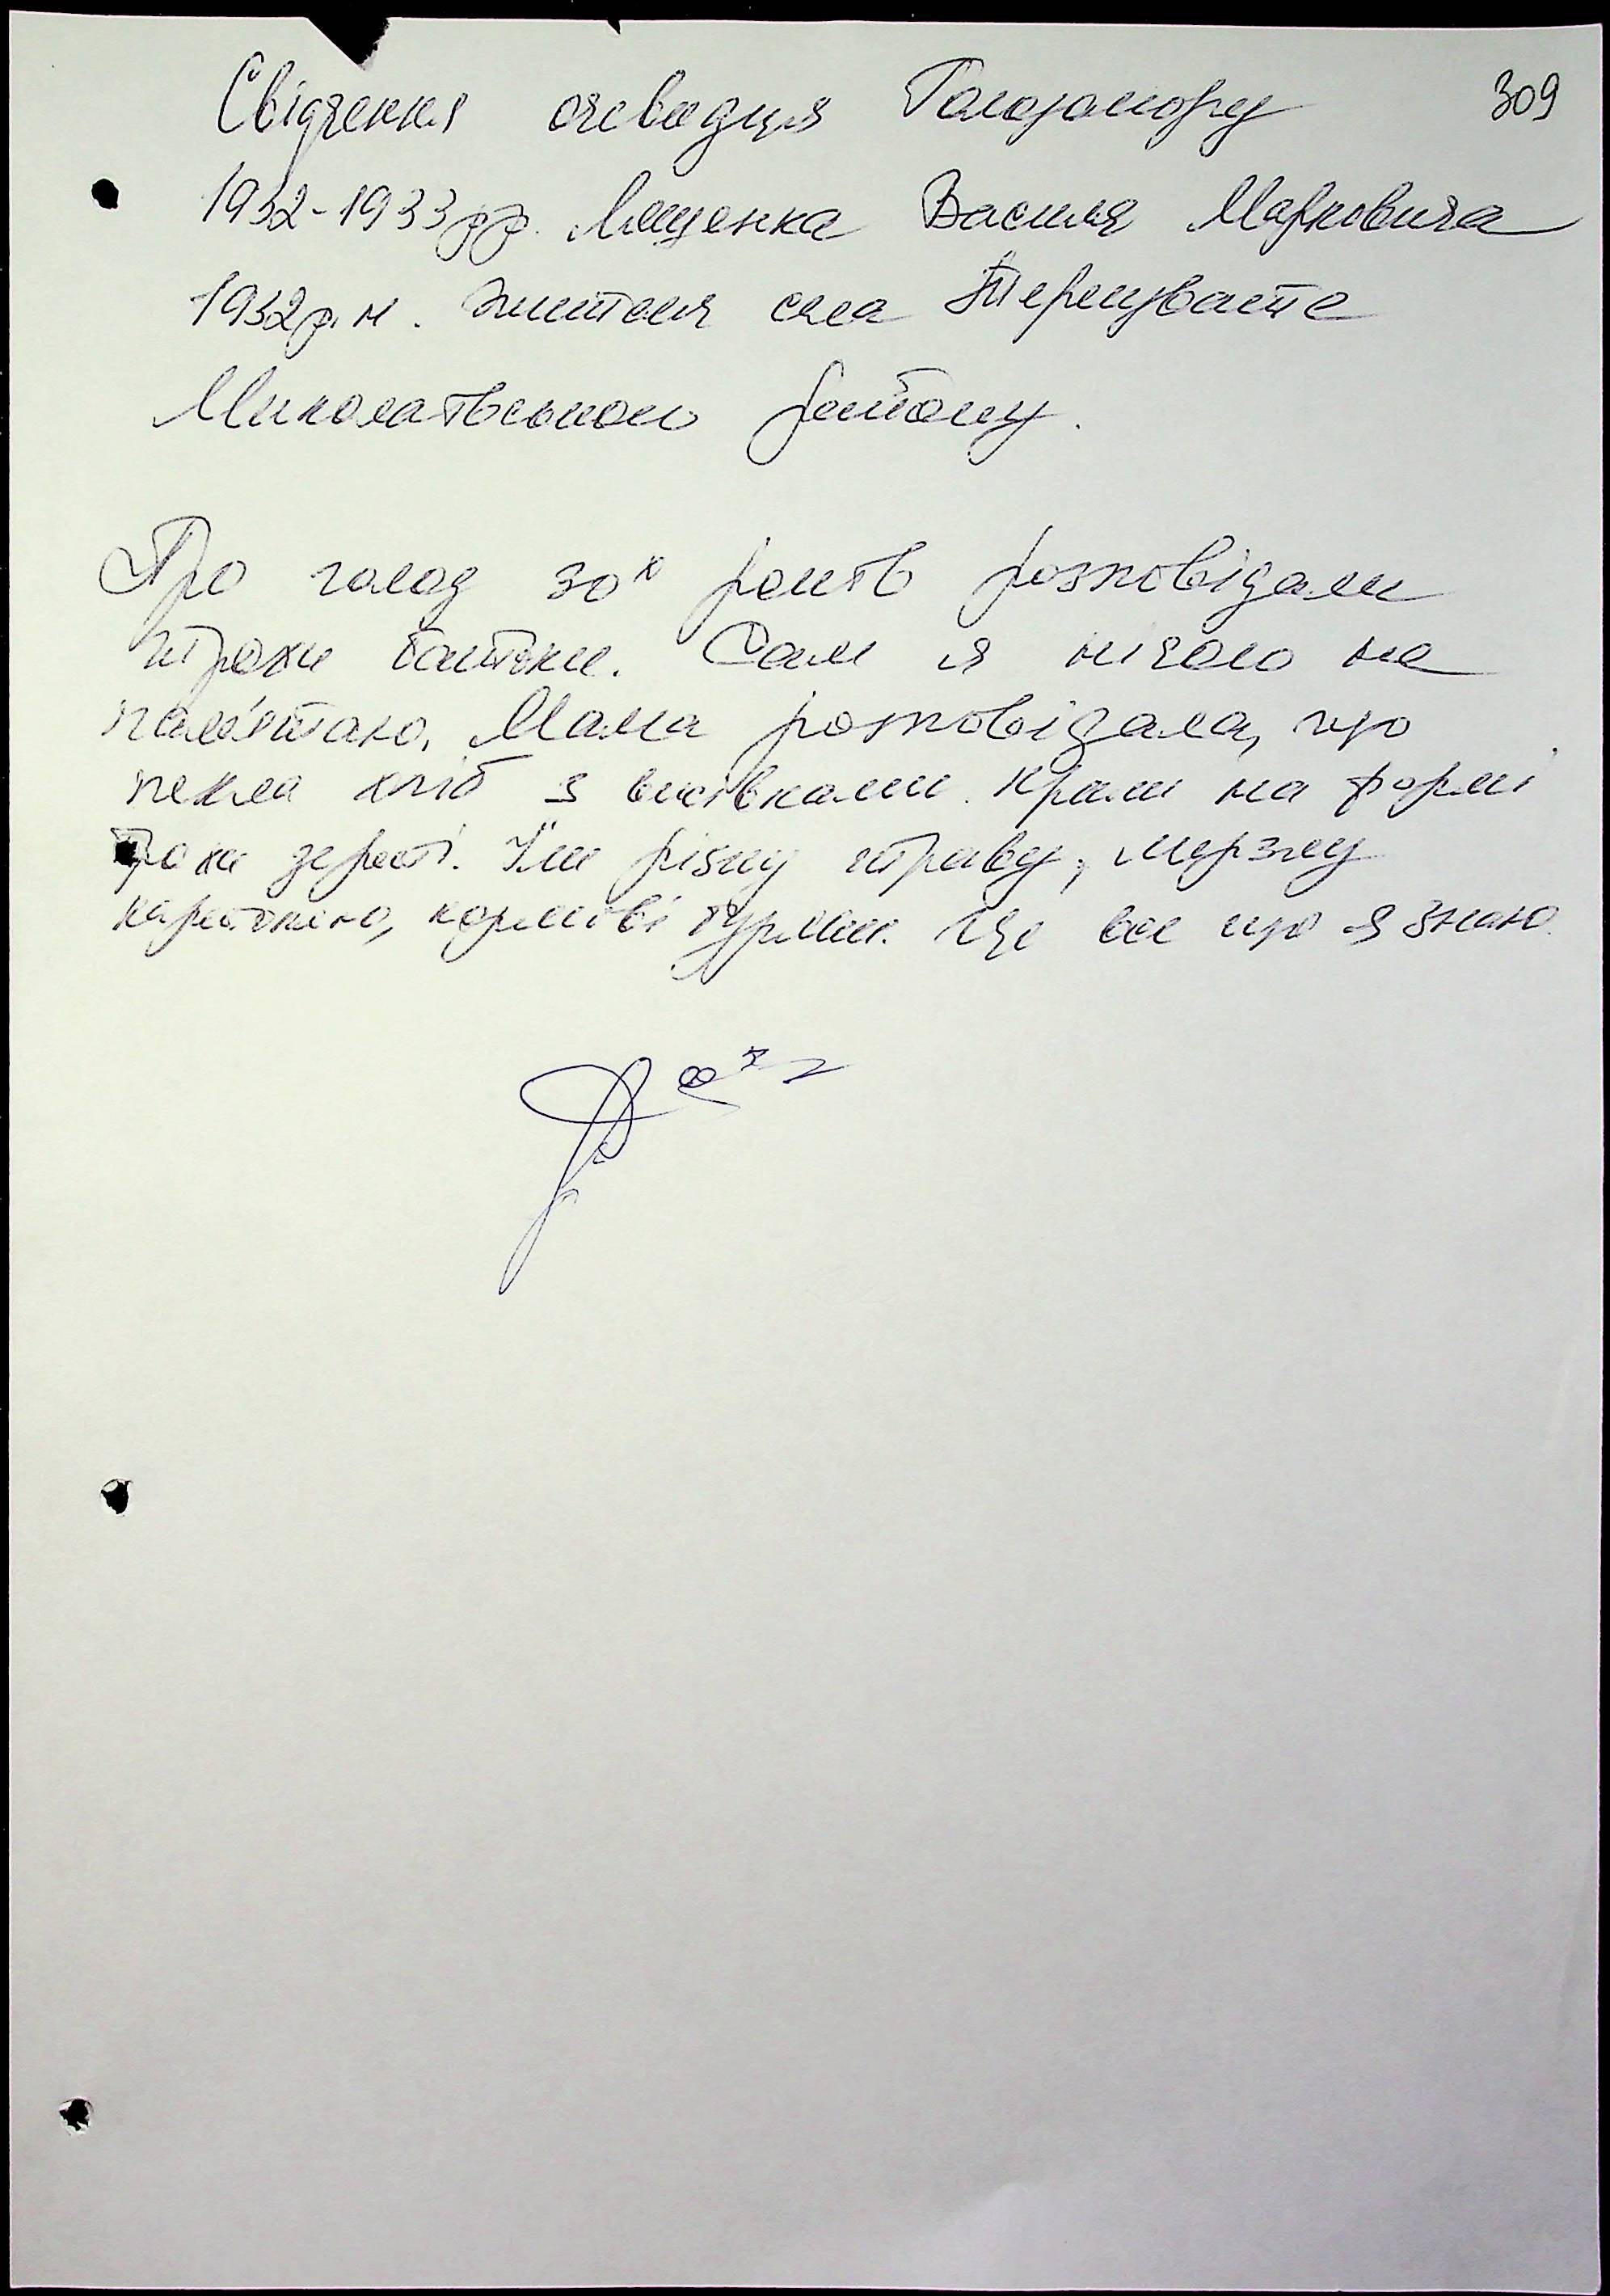 309
Свідчення очевидця Голодомору
1932-1933рр. Лященка Василя Марковича
1932р.н. жителя села Тернувате
Миколаївського району.
Про голод 30х років розповідали
трохи батьки. Сам я нічого не
пам'ятаю. Мама розповідала, що
пекла хліб з висівками. Крали на формі
трохи зерна. Їли різну траву, мерзлу
картоплю, кормові буряки. Це все що я знаю.